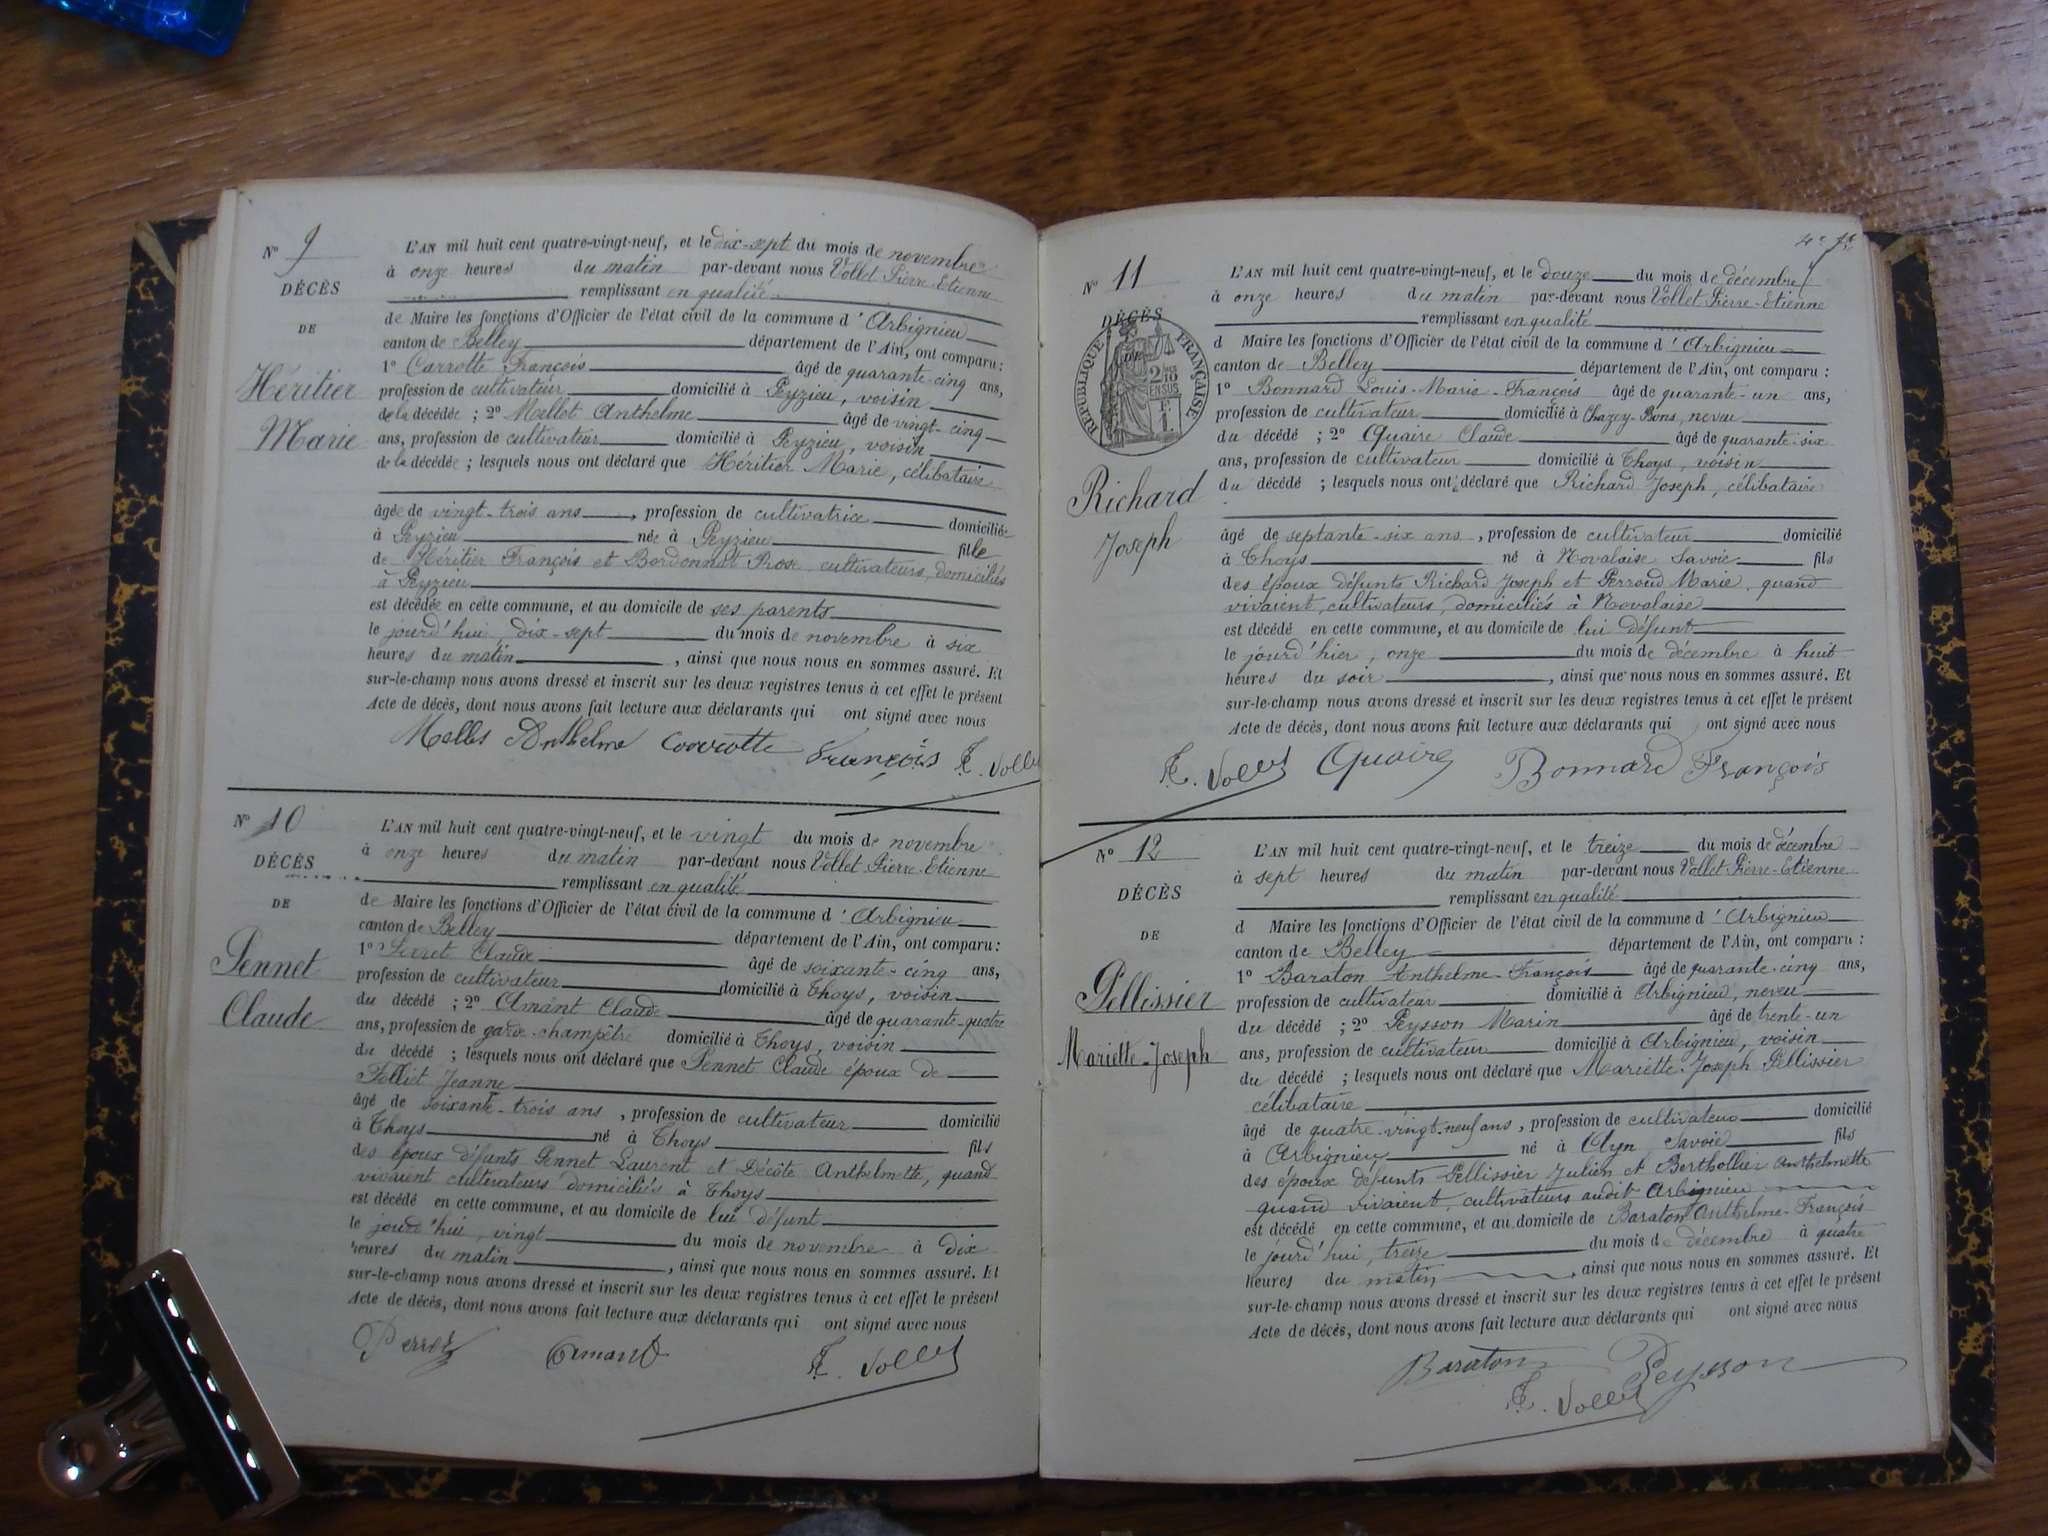 N° 9
DÉCÈS
DE
Héritier
Marie
L'AN mil huit cent quatre-vingt-neuf, et le dix-sept du mois de novembre
à onze heures du matin par-devant nous Vollet Pierre-Etienne
remplissant en qualité
de Maire les fonctions d'Officier de l'état civil de la commune d'Arbignieu
canton de Belley département de l'Ain, ont comparu :
1° Carrotte François âgé de quarante-cinq ans,
profession de cultivateur domicilié à Peyzieu, voisin
de la décédée ; 2° Mellet Anthelme âgé de vingt-cinq
ans, profession de cultivateur domicilié à Peyzieu, voisin
de la décédée ; lesquels nous ont déclaré que Héritier Marie, célibataire
âgée de vingt-trois ans, profession de cultivatrice domiciliée
à Peyzieu née à Peyzieu fille
de Héritier François et Bordonnat Rose cultivateurs, domiciliés
à Peyzieu
est décédée en cette commune, et au domicile de ses parents
le jourd'hui, dix-sept du mois de novembre à six
heures du matin, ainsi que nous nous en sommes assuré. Et
sur-le-champ nous avons dressé et inscrit sur les deux registres tenus à cet effet le présent
Acte de décès, dont nous avons fait lecture aux déclarants qui ont signé avec nous
Anthelme François
N° 10
DÉCÈS
DE
Pennet
Claude
L'AN mil huit cent quatre-vingt-neuf, et le vingt du mois de novembre
à onze heures du matin par-devant nous Vollet Pierre-Etienne
remplissant en qualité
de Maire les fonctions d'Officier de l'état civil de la commune d'Arbignieu
canton de Belley département de l'Ain, ont comparu :
1° Claude âgé de soixante-cinq ans,
profession de cultivateur domicilié à Thoys, voisin
du décédé ; 2° Amant Claude âgé de quarante-quatre
ans, profession de garde-champêtre domicilié à Thoys, voisin
du décédé ; lesquels nous ont déclaré que Pennet Claude époux de
Folliet Jeanne
âgé de soixante-trois ans, profession de cultivateur domicilié
à Thoys né à Thoys fils
des époux défunts Pennet Laurent et Décôte Anthelmette, quand
vivaient cultivateurs domiciliés à Thoys
est décédé en cette commune, et au domicile de lui défunt
le jourd'hui, vingt du mois de novembre à dix
heures du matin, ainsi que nous nous en sommes assuré. Et
sur-le-champ nous avons dressé et inscrit sur les deux registres tenus à cet effet le présent
Acte de décès, dont nous avons fait lecture aux déclarants qui ont signé avec nous
N° 11
DÉCÈS
DE
RÉPUBLIQUE FRANÇAISE
Richard
Joseph
L'AN mil huit cent quatre-vingt-neuf, et le douze du mois de décembre
à onze heures du matin par-devant nous Vollet Pierre-Etienne
remplissant en qualité
d Maire les fonctions d'Officier de l'état civil de la commune d'Arbignieu
canton de Belley département de l'Ain, ont comparu :
1° Bonnard Louis-Marie-François âgé de quarante-un ans,
profession de cultivateur domicilié à Chazey-Bons, neveu
du décédé ; 2° Quaire Claude âgé de quarante-six
ans, profession de cultivateur domicilié à Thoys, voisin
du décédé ; lesquels nous ont déclaré que Richard Joseph, célibataire
âgé de septante-six ans, profession de cultivateur domicilié
à Thoys né à Novalaise Savoie fils
des époux défunts Richard Joseph et Perroud Marie, quand
vivaient, cultivateurs, domiciliés à Novalaise
est décédé en cette commune, et au domicile de lui défunt
le jourd'hier, onze du mois de décembre à huit
heures du soir, ainsi que nous nous en sommes assuré. Et
sur-le-champ nous avons dressé et inscrit sur les deux registres tenus à cet effet le présent
Acte de décès, dont nous avons fait lecture aux déclarants qui ont signé avec nous
Quaire Bonnard François
N° 12
DÉCÈS
DE
Pellissier
Mariette-Joseph
L'AN mil huit cent quatre-vingt-neuf, et le treize du mois de décembre
à sept heures du matin par-devant nous Vollet Pierre-Etienne
remplissant en qualité
d Maire les fonctions d'Officier de l'état civil de la commune d'Arbignieu
canton de Belley département de l'Ain, ont comparu :
1° Baraton Anthelme-François âgé de quarante-cinq ans,
profession de cultivateur domicilié à Arbignieu, neveu
du décédé ; 2° Peysson Marin âgé de trente-un
ans, profession de cultivateur domicilié à Arbignieu, voisin
du décédé ; lesquels nous ont déclaré que Mariette-Joseph Pellissier
célibataire
âgé de quatre-vingt-neuf ans, profession de cultivateur domicilié
à Arbignieu né à Savoie fils
des époux défunts Pellissier Julien et Berthollier Anthelmette
quand vivaient, cultivateurs audit Arbignieu
est décédé en cette commune, et au domicile de Baraton Anthelme-François
le jourd'hui, treize du mois de décembre à quatre
heures du matin, ainsi que nous nous en sommes assuré. Et
sur-le-champ nous avons dressé et inscrit sur les deux registres tenus à cet effet le présent
Acte de décès, dont nous avons fait lecture aux déclarants qui ont signé avec nous
Baraton Peysson